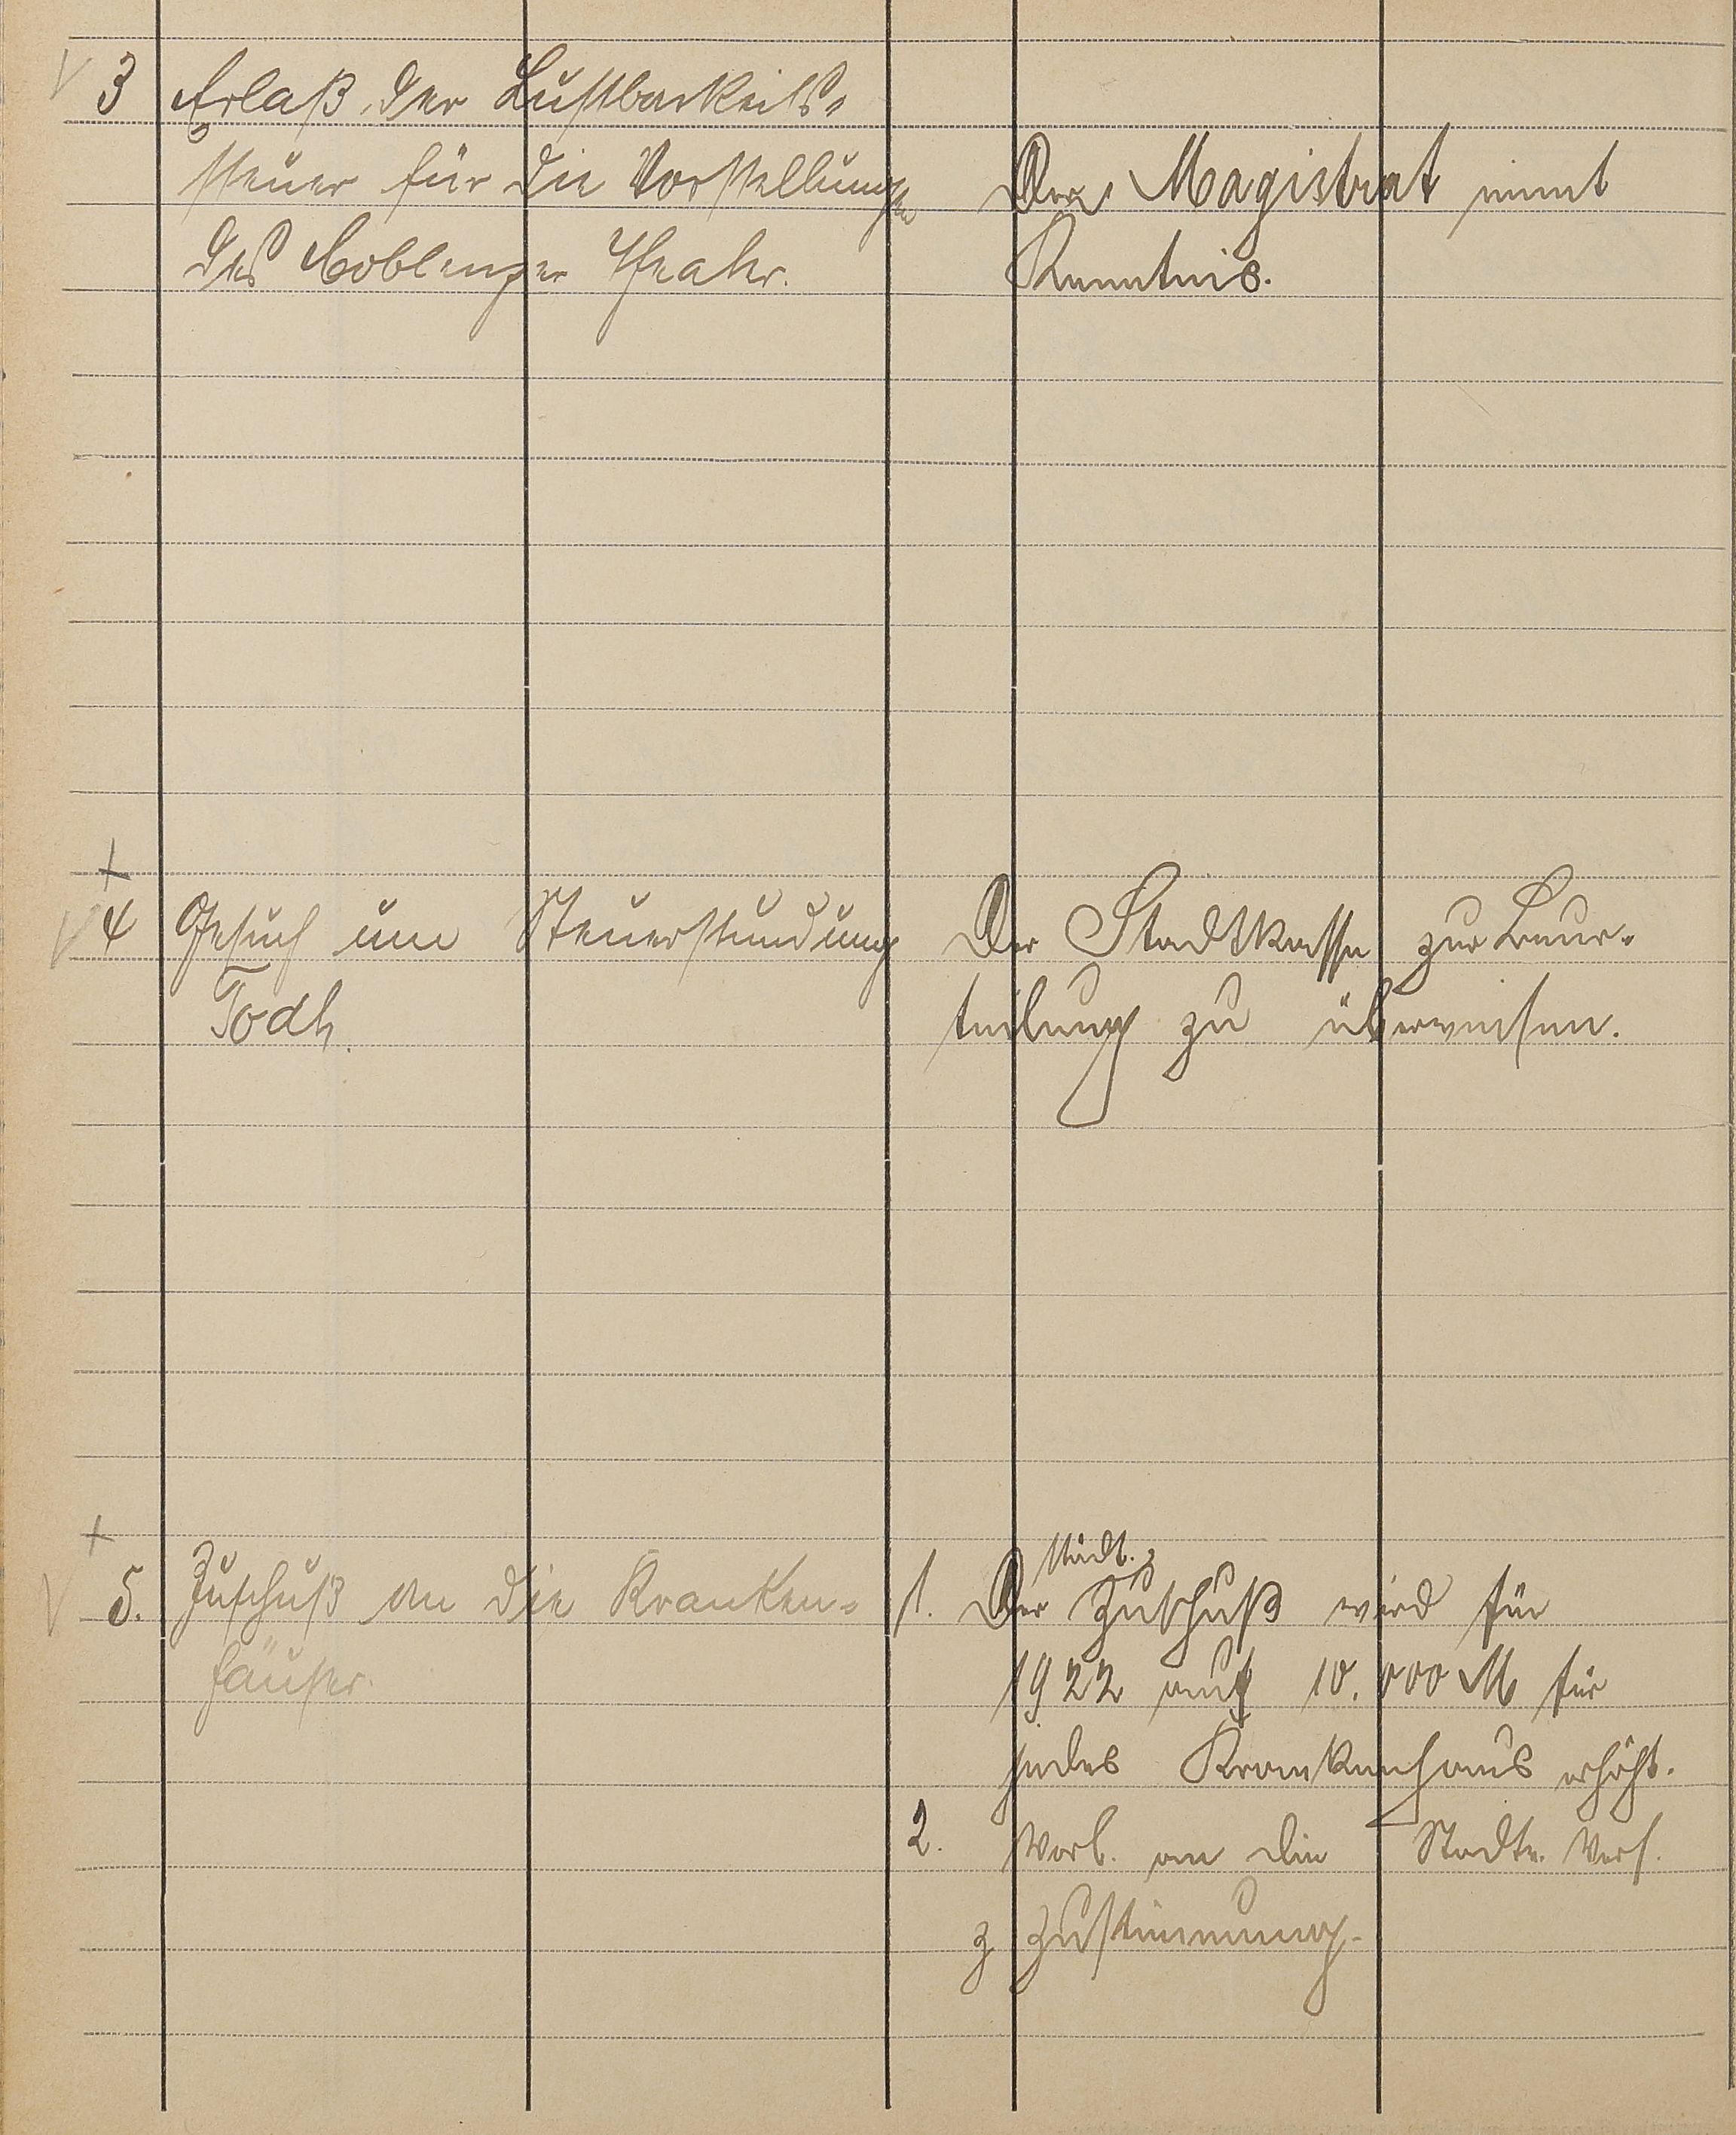 3 Erlaß der Lustbarkeits-
steuer für die Vorstellungen
des Coblenzer Theater.
Der Magistrat nimt
Kenntnis.
4 Gesuch um Steuerstundung
Todh.
Der Stadtkasse zur Beur-
teilung zu überweisen.
5. Zuschuß an die Kranken-
häuser.
1. Der städt. Zuschuß wird für
1922 auf 10.000 M für
jedes Krankenhaus erhöht.
2. Vorl. an die Stadtv. Vers.
z Zustimmung.